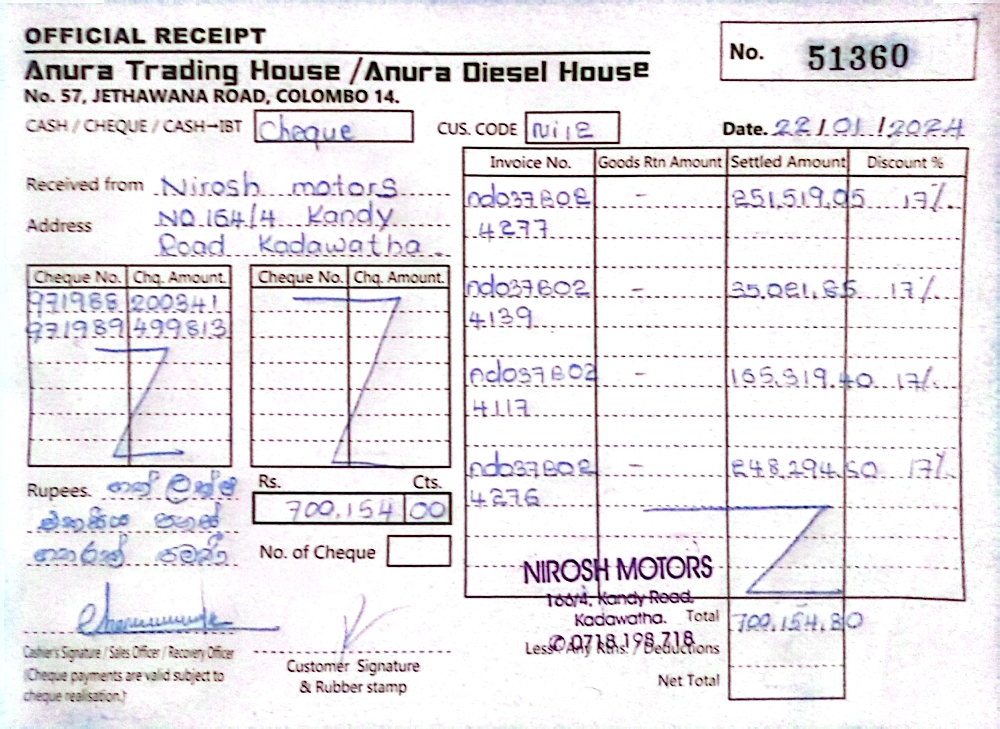 OFFICIAL RECEIPT
Anura Trading House / Anura Diesel House
No. 57, JETHAWANA ROAD, COLOMBO 14.
No. 51360
CASH / CHEQUE / CASH-IBT Cheque
CUS. CODE Ni12
Date. 22/01/2024
Received from Nirosh motors
Address NO.164/4 Kandy
Road Kadawatha.
Cheque No. Chq. Amount.
971988 200341
971989 499813
Cheque No. Chq. Amount.
Invoice No. Goods Rtn Amount Settled Amount Discount %
nd037B02 - 251,519.05 17%
4277
nd037B02 - 35,021.85 17%
4139
nd037B02 - 165,319.40 17%
4117
nd037B02 - 248,294.50 17%
4276
Rupees. හත් ලක්ෂ
එකසිය පනස්
හතරක් පමණි
Rs. Cts.
700,154 00
No. of Cheque
NIROSH MOTORS
166/4, Kandy Road,
Kadawatha.
0718 198 718
Total 700,154.80
Less Any Rtns / Deductions
Net Total
Cashier's Signature / Sales Officer / Recovery Officer
(Cheque payments are valid subject to
cheque realisation.)
Customer Signature
& Rubber stamp